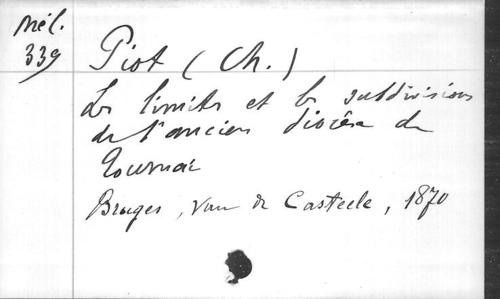 Mél.
339
Piot (Ch.)
Les limites et les subdivisions
de l'ancien diocèse de
Tournai
Bruges, Van de Casteele, 1870